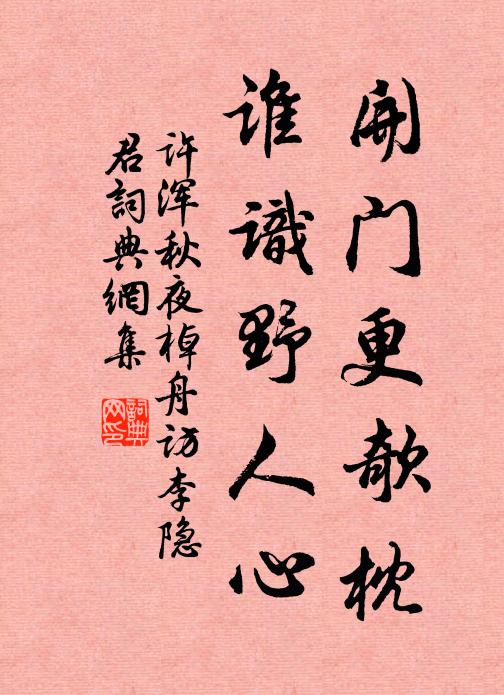 開门更欹枕
谁識野人心
许浑秋夜棹舟访李隐
君詞典網集
詞典
网印